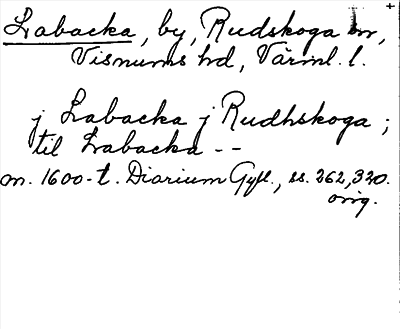 Labacka, by, Rudskoga sn,
Visnums hd, Värml. l.
j Labacka j Rudhskoga ;
til Labacka --
m. 1600-t. Diarium Gyll., ss. 262, 320.
orig.